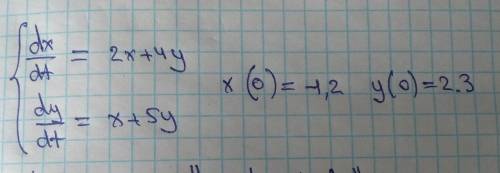 dx/dt = 2x+4y
dy/dt = x+5y
x(0)=-1,2 y(0)=2.3